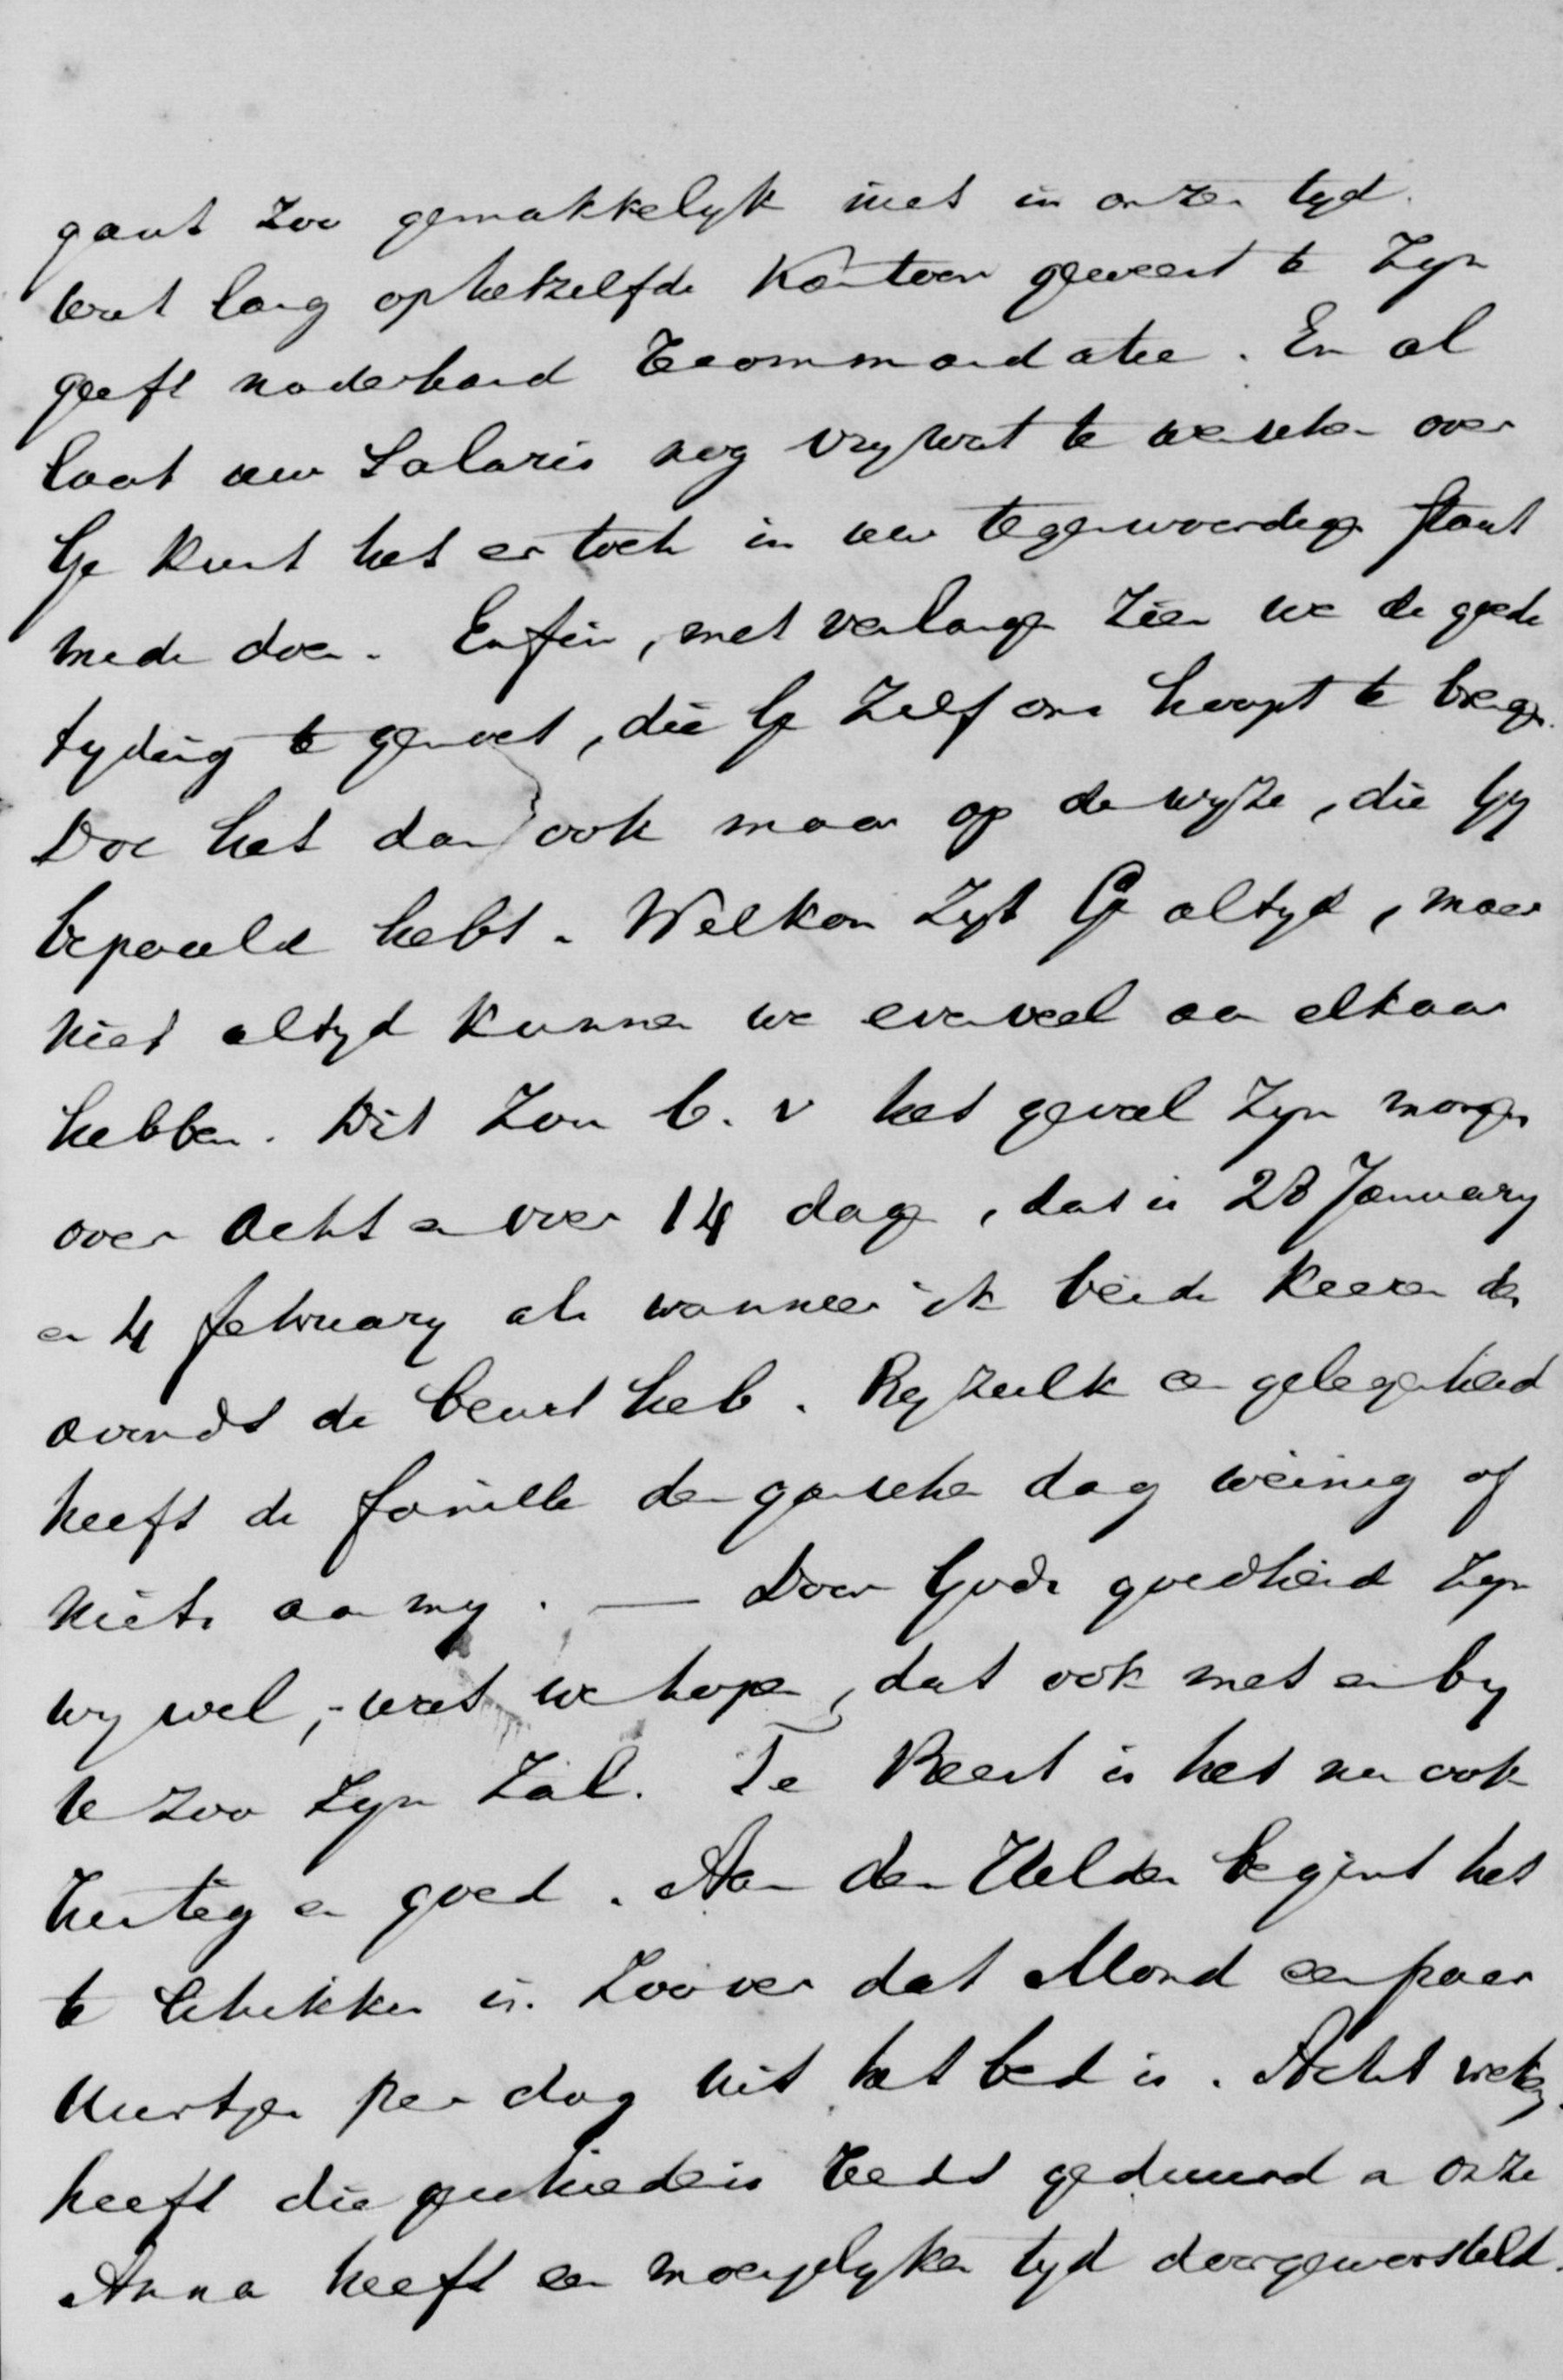 gaat zoo gemakkelyk niet in onzen tyd.
Wat lang op hetzelfde Kantoor geweest te zyn
geeft naderhand recommandatie. En al
laat uw Salaris nog vry wat te wenschen over
Ge kunt het er toch in uw tegenwoordigen staat
mede doen. Enfin, met verlangen zien we de goede
tyding te gemoet, die Ge zelf ons hoopt te brengen.
Doe het dan ook maar op de wyze, die Gy
bepaald hebt. Welkom zyt Ge altyd, maar
niet altyd kunnen we evenveel aan elkaar
hebben. Dit zou b. v het geval zyn morgen
over acht en over 14 dagen, dat is 28 January
en 4 february als wanneer ik beide keeren des
avonds de beurt heb. By zulk een gelegenheid
heeft de familie den ganschen dag weinig of
niets aan my. — Door Gods goedheid zyn
wy wel, - wat we hopen, dat ook met en by
U zoo zyn zal. Te Beest is het nu ook
rustig en goed. Aan den Helder begint het
te schikken in. Zoover dat Mond een paar
uurtjes per dag uit het bed is. Acht weken
heeft die geschiedenis reeds geduurd en onze
Anna heeft een moeyelyken tyd doorgeworsteld.